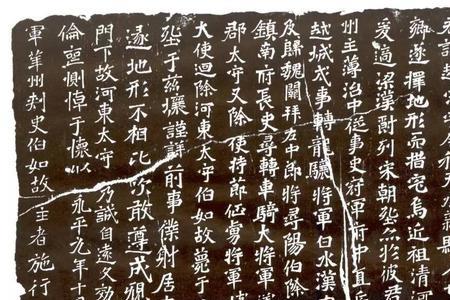 卿遂擇地形而措宅焉近祖清河
爰適梁漢尉列宋朝於彼君
州主薄治中從事史府軍府中直
越城戎事轉龍驤將軍白水漢
及歸魏闕拜左中郎將尋陽伯除
鎮南府長史尋轉車騎大將軍
郡太守又除使持節征虜將軍
大使迴除河東太守伯如故薨于
坐于茲壤謹詳前事 僕射居
遂地形不相比次敢遵成規
門下故河東太守 乃誠自遠久効
倫喪惻悼于懷以永平九年十
軍華州刺史伯如故主者施行